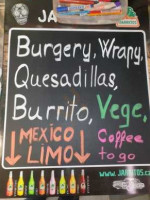 JA
Burgery, Wrapy,
Quesadillas,
Burrito, Vege,
MEXICO
LIMO
Coffee
to go